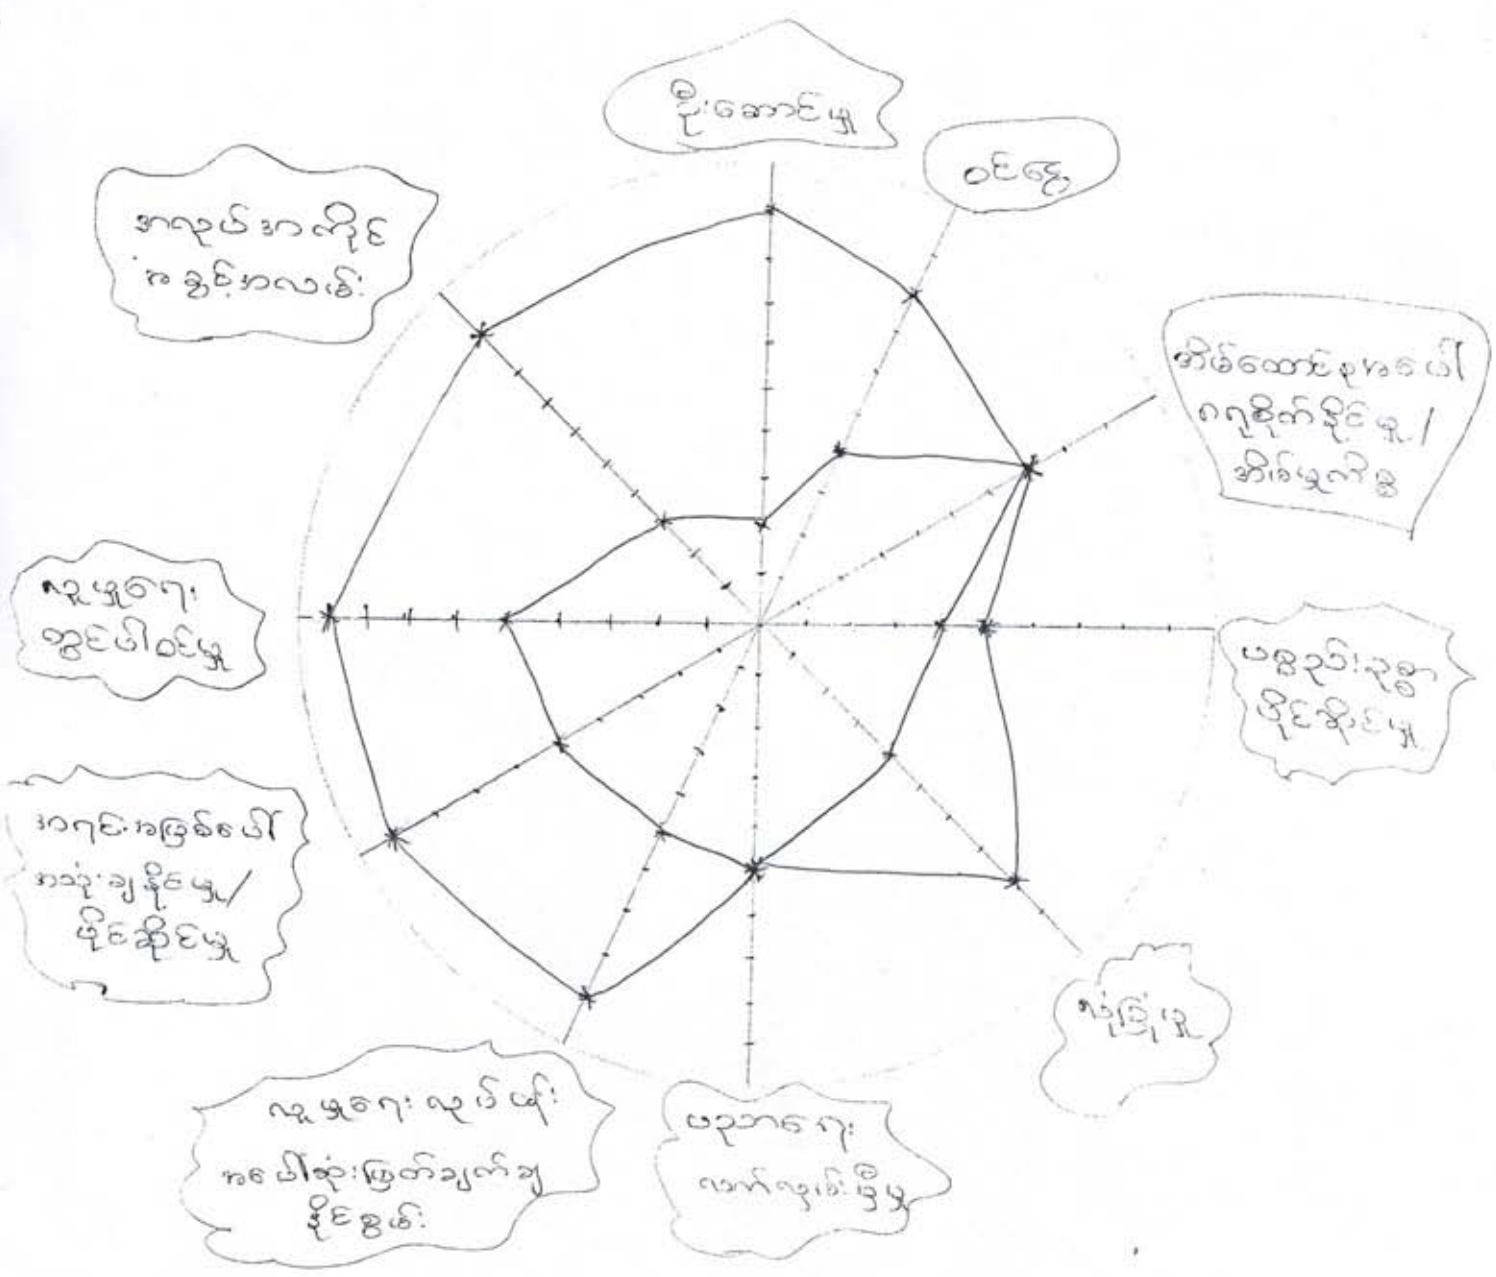 ဦးဆောင်မှု
ဝင်ငွေ
အိမ်ထောင်စုအပေါ်
ဂရုစိုက်နိုင်မှု /
အိမ်မှုကိစ္စ
ပစ္စည်းဥစ္စာ
ပိုင်ဆိုင်မှု
လုံခြုံမှု
ပညာရေး
လက်လှမ်းမှီမှု
လူမှုရေး လုပ်ငန်း
အပေါ်ဆုံးဖြတ်ချက်ချ
နိုင်စွမ်း
အရင်းအမြစ်ပေါ်
အသုံးချနိုင်မှု/
ပိုင်ဆိုင်မှု
လူမှုရေး
တွင်ပါဝင်မှု
အလုပ်အကိုင်
အခွင့်အလမ်း